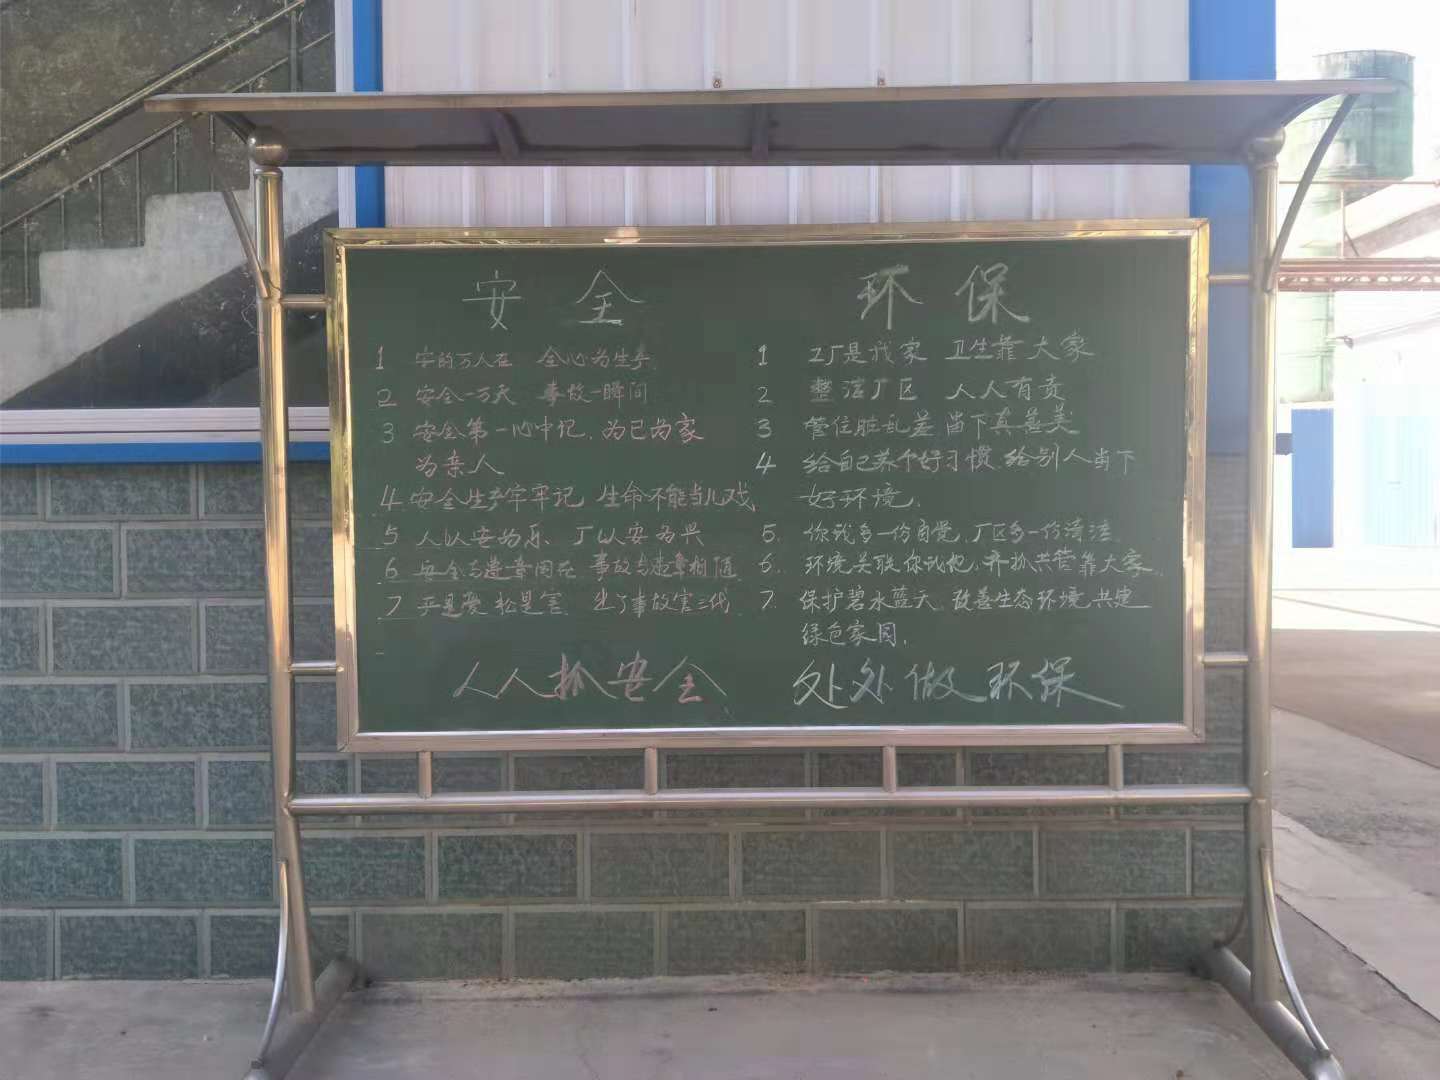 安 全
1 安的万人在 全心为生产
2 安全一万天 事故一瞬间
3 安全第一心中记，为己为家
为亲人
4 安全生产牢牢记 生命不能当儿戏
5 人以安为乐 厂以安为兴
6 安全与遵章同在 事故与违章相随
7 严是爱 松是害 出了事故害三代
人人抓安全
环 保
1 工厂是我家 卫生靠大家
2 整洁厂区 人人有责
3 管住脏乱差 留下真善美
4 给自己养个好习惯 给别人当下
好环境.
5. 你我多一份自觉，厂区多一份清洁
6. 环境关联你我他，齐抓共管靠大家
7. 保护碧水蓝天 改善生态环境 共建
绿色家园.
处处做环保